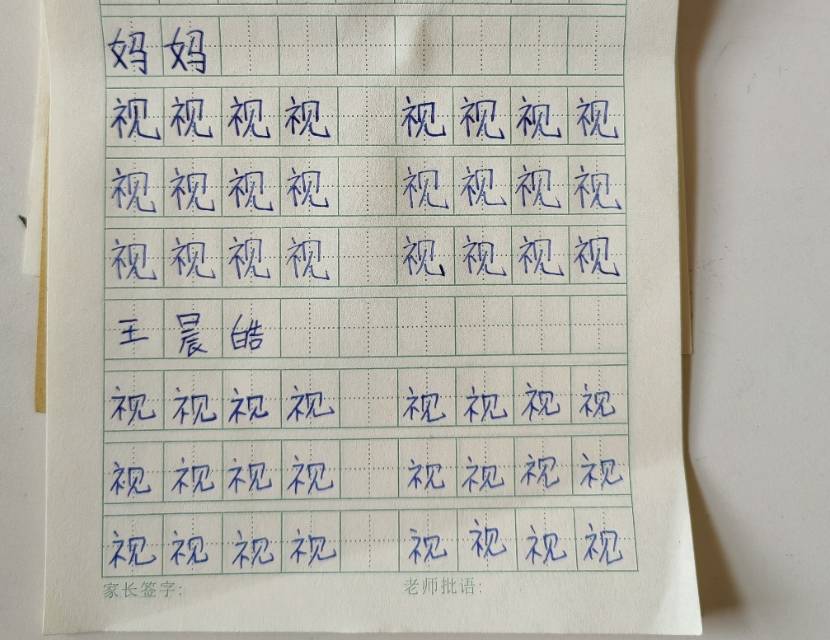 妈妈
视视视视 视视视视
视视视视 视视视视
视视视视 视视视视
王晨皓
视视视视 视视视视
视视视视 视视视视
视视视视 视视视视
家长签字: 老师批语: